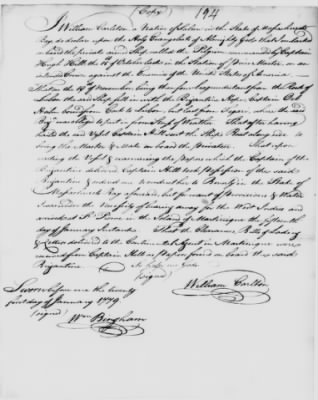 (Copy)
194
William Carlton a Native of Salem in the State of Massachusets
Bay do declare upon the Holy Evangelists of Almighty God that I embarked
on board the private arm'd Ship called the Pilgrim commanded by Captain
Hugh Hill the of October last in the Station of Prize Master, on an
intended Cruize against the Enemies of the United States of America
That on the 19th of November being than four Leagues distant from the Rock of
Lisbon the said Ship fell in with the Byzantine Snow, Captain
bound from to Lisbon, but last from Vigo, when the said
to part from of Weather That after having
the said Vessel Captain Hill sent the Ships Boat along side to
bring the Master & Mate on board the Privateer. That upon
the Vessel & examining the Papers which the Captain of the
Byzantine delivered Captain Hill took Possession of the said
Byzantine & order'd me to conduct her to Beverly in the State of
Massachusets Bay aforesaid, but for want of Provisions & Water
I was under the Necessity of bearing away for the West Indies and
arrived at St Pierre in the Island of Martinique the fifteenth day
of January Instant. That the Clearance Bills of Lading
& Letters delivered to the Continental Agent in Martinique were
received from Captain Hill as Papers found on board the said
Byzantine
So help me God
(signed)
William Carlton
Sworn before me the twenty
first day of January 1779
(signed) Wm Bingham